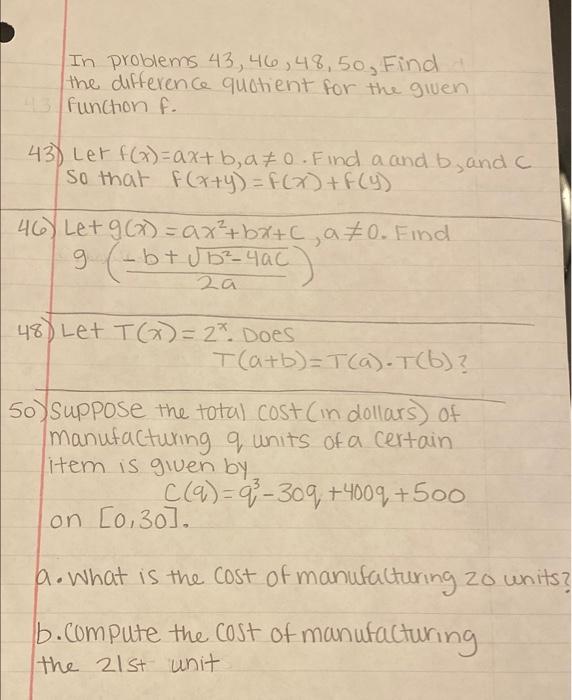 In problems 43, 46, 48, 50, Find
the difference quotient for the given
function f.
43) Let f(x)=ax+b, a≠0. Find a and b, and c
so that f(x+y)=f(x)+f(y)
46) Let g(x)=ax²+bx+c, a≠0. Find
g((-b+√b²-4ac)/2a)
48) Let T(x)=2ˣ. Does
T(a+b)=T(a)·T(b)?
50) Suppose the total cost (in dollars) of
manufacturing q units of a certain
item is given by
C(q)=q³-30q+400q+500
on [0,30].
a. What is the cost of manufacturing 20 units?
b. Compute the cost of manufacturing
the 21st unit